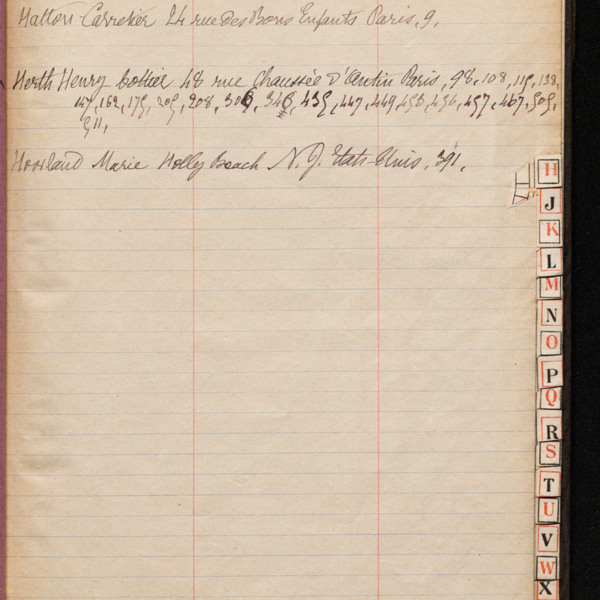 Hatton Carretier 24 rue des Bons Enfants Paris, 9,
Herth Henry bottier 48 rue Chaussée d'Antin Paris, 98, 108, 119, 138,
147, 162, 179, 209, 208, 306, 346, 439, 447, 449, 453, 456, 457, 467, 509,
511,
Marie Holly Beach N. J. Etats-Unis, 391,
H
J
K
L
M
N
O
P
Q
R
S
T
U
V
W
X